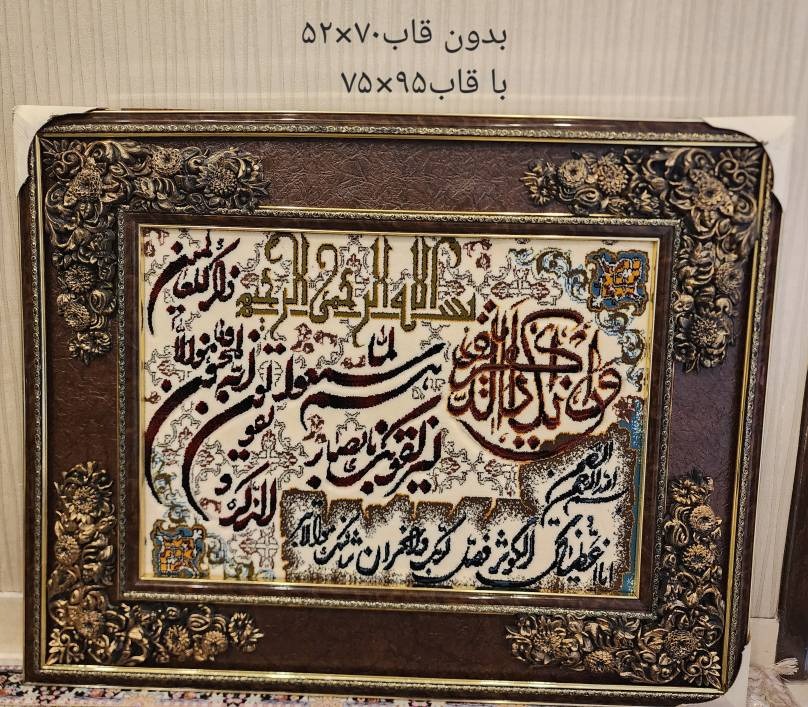 بدون قاب۷۰×۵۲
با قاب۹۵×۷۵
بسم الله الرحمن الرحیم
وان یکاد الذین کفروا
لیزلقونک بابصارهم
لما سمعوا
الذکر و یقولون
انه لمجنون و ما هو الا
ذکر للعالمین
بسم الله الرحمن الرحیم
انا اعطیناک الکوثر فصل لربک وانحر ان شانئک هو الابتر